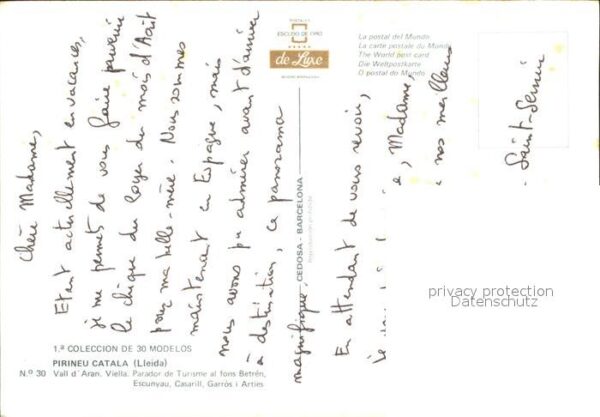 Chère Madame,
Etant actuellement en vacances,
je me permets de vous faire parvenir
le chèque du loyer du mois d'Août
pour ma belle-mère. Nous sommes
maintenant en Espagne, mais
nous avons pu admirer avant d'arriver
à destination, ce panorama
magnifique.
En attendant de vous revoir,
, Madame,
nos meilleurs
Saint-
POSTALES
ESCUDO DE ORO
de Luxe
La postal del Mundo
La carte postale du Monde
The World post card
Die Weltpostkarte
O postal do Mundo
CEDOSA - BARCELONA
privacy protection
Datenschutz
1.ª COLECCION DE 30 MODELOS
PIRINEU CATALA (Lleida)
N.º 30 Vall d'Aran. Viella. Parador de Turisme al fons Betrén,
Escunyau, Casarill, Garrós i Arties